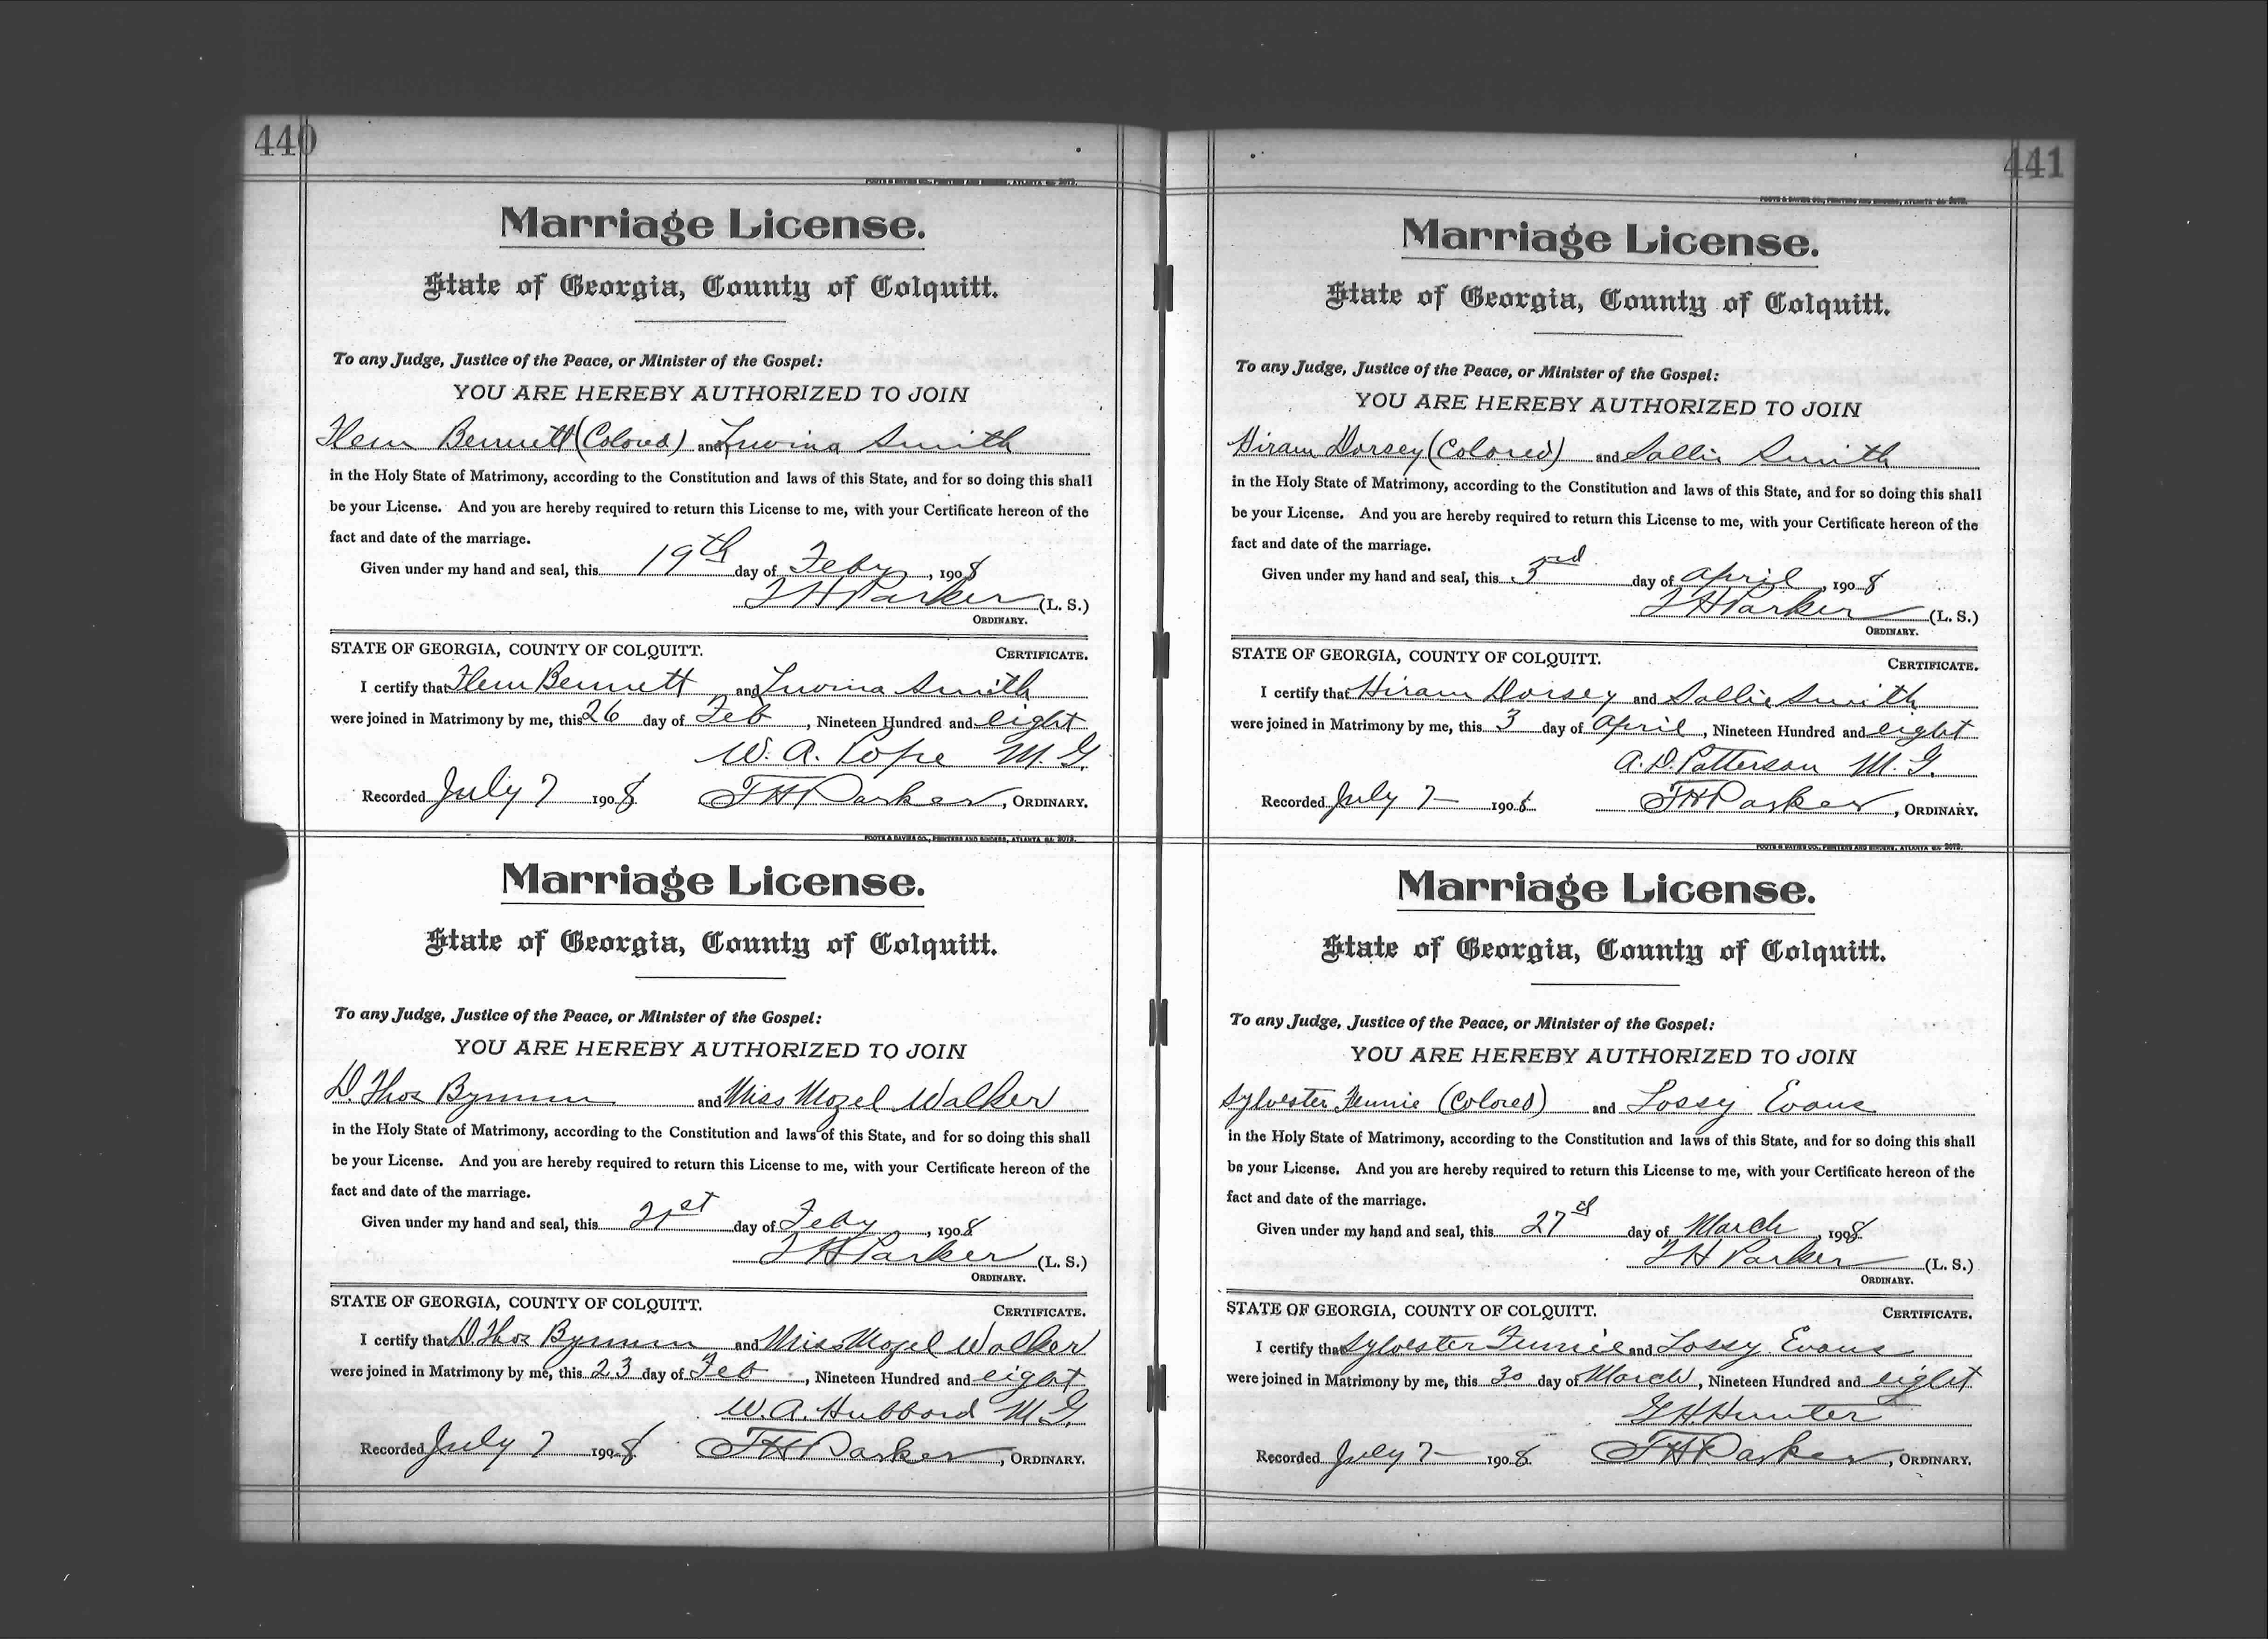 440
FOOTE & DAVIES CO., PRINTERS AND BINDERS, ATLANTA GA. 3073.
Marriage License.
State of Georgia, County of Colquitt.
To any Judge, Justice of the Peace, or Minister of the Gospel:
YOU ARE HEREBY AUTHORIZED TO JOIN
Flem Bennett (Colored) and Luvina Smith
in the Holy State of Matrimony, according to the Constitution and laws of this State, and for so doing this shall
be your License. And you are hereby required to return this License to me, with your Certificate hereon of the
fact and date of the marriage.
Given under my hand and seal, this 19th day of Feby, 1908
T H Parker (L. S.)
ORDINARY.
STATE OF GEORGIA, COUNTY OF COLQUITT. CERTIFICATE.
I certify that Flem Bennett and Luvina Smith
were joined in Matrimony by me, this 26 day of Feb, Nineteen Hundred and eight
W. A. Pope M. G.
Recorded July 7 1908. T H Parker, ORDINARY.
FOOTE & DAVIES CO., PRINTERS AND BINDERS, ATLANTA GA. 3073.
Marriage License.
State of Georgia, County of Colquitt.
To any Judge, Justice of the Peace, or Minister of the Gospel:
YOU ARE HEREBY AUTHORIZED TO JOIN
D. Thos Bynum and Miss Mozel Walker
in the Holy State of Matrimony, according to the Constitution and laws of this State, and for so doing this shall
be your License. And you are hereby required to return this License to me, with your Certificate hereon of the
fact and date of the marriage.
Given under my hand and seal, this 21st day of Feby, 1908
T H Parker (L. S.)
ORDINARY.
STATE OF GEORGIA, COUNTY OF COLQUITT. CERTIFICATE.
I certify that D. Thos Bynum and Miss Mozel Walker
were joined in Matrimony by me, this 23 day of Feb, Nineteen Hundred and eight
W. A. Hubbard M. G.
Recorded July 7 1908. T H Parker, ORDINARY.
441
FOOTE & DAVIES CO., PRINTERS AND BINDERS, ATLANTA GA. 3073.
Marriage License.
State of Georgia, County of Colquitt.
To any Judge, Justice of the Peace, or Minister of the Gospel:
YOU ARE HEREBY AUTHORIZED TO JOIN
Hiram Dorsey (Colored) and Sallie Smith
in the Holy State of Matrimony, according to the Constitution and laws of this State, and for so doing this shall
be your License. And you are hereby required to return this License to me, with your Certificate hereon of the
fact and date of the marriage.
Given under my hand and seal, this 3rd day of April, 1908
T H Parker (L. S.)
ORDINARY.
STATE OF GEORGIA, COUNTY OF COLQUITT. CERTIFICATE.
I certify that Hiram Dorsey and Sallie Smith
were joined in Matrimony by me, this 3 day of April, Nineteen Hundred and eight
A. D. Patterson M. G.
Recorded July 7 1908. T H Parker, ORDINARY.
FOOTE & DAVIES CO., PRINTERS AND BINDERS, ATLANTA GA. 3073.
Marriage License.
State of Georgia, County of Colquitt.
To any Judge, Justice of the Peace, or Minister of the Gospel:
YOU ARE HEREBY AUTHORIZED TO JOIN
Sylvester (Colored) and Lossy Evans
in the Holy State of Matrimony, according to the Constitution and laws of this State, and for so doing this shall
be your License. And you are hereby required to return this License to me, with your Certificate hereon of the
fact and date of the marriage.
Given under my hand and seal, this 27d day of March, 1908
T H Parker (L. S.)
ORDINARY.
STATE OF GEORGIA, COUNTY OF COLQUITT. CERTIFICATE.
I certify that Sylvester and Lossy Evans
were joined in Matrimony by me, this 30 day of March, Nineteen Hundred and eight
G H Hunter
Recorded July 7 1908. T H Parker, ORDINARY.